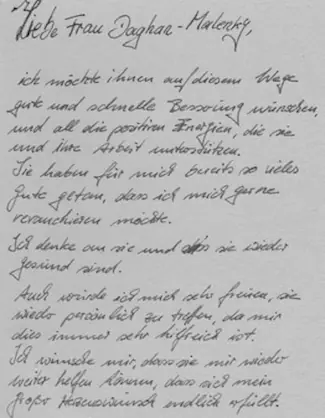 Liebe Frau Daghan-Malenky,
ich möchte ihnen auf diesem Wege
gute und schnelle Besserung wünschen,
und all die positiven Energien, die sie
und ihre Arbeit unterstützen.
Sie haben für mich bereits so vieles
Gute getan, dass ich mich gerne
revanchieren möchte.
Ich denke an sie und das sie wieder
gesund sind.
Auch würde ich mich sehr freuen, sie
wieder persönlich zu treffen, da mir
dies immer sehr hilfreich ist.
Ich wünsche mir, dass sie mir wieder
weiter helfen können, dass sich mein
großer Herzenswunsch endlich erfüllt.